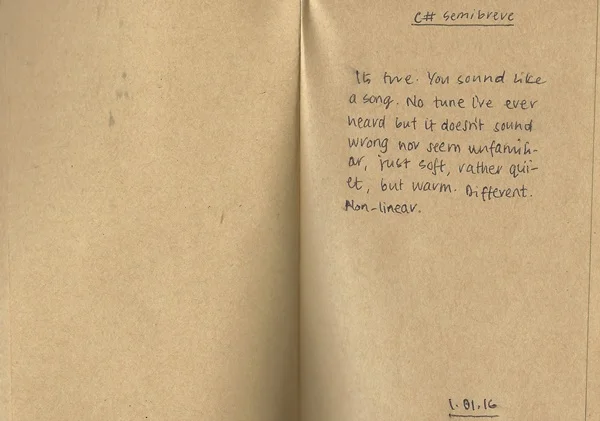 C# semibreve
Its true. You sound like
a song. No tune I've ever
heard but it doesn't sound
wrong nor seem unfamili-
ar, just soft, rather qui-
et, but warm. Different.
Non-linear.
1.01.16